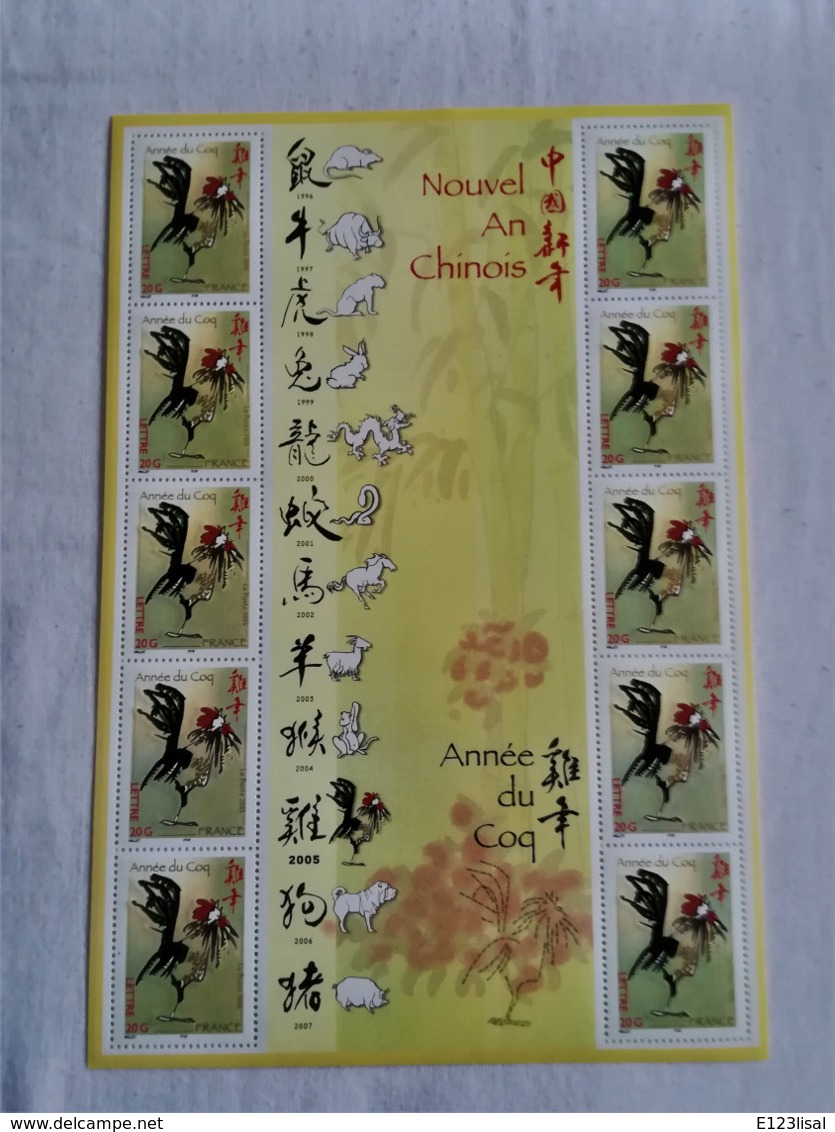 Année du Coq
雞年
LETTRE
20G
FRANCE
Année du Coq
雞年
LETTRE
20G
FRANCE
Année du Coq
雞年
La Poste 2005
LETTRE
20G
FRANCE
Année du Coq
雞年
LETTRE
20G
FRANCE
Année du Coq
雞年
LETTRE
20G
FRANCE
鼠
1996
牛
1997
虎
1998
兔
1999
龍
2000
蛇
2001
馬
2002
羊
2003
猴
2004
雞
2005
狗
2006
猪
2007
Nouvel
An
Chinois
中國新年
Année
du
Coq
雞年
Année du Coq
雞年
LETTRE
20G
FRANCE
Année du Coq
雞年
LETTRE
20G
FRANCE
Année du Coq
雞年
LETTRE
20G
FRANCE
Année du Coq
雞年
LETTRE
20G
FRANCE
Année du Coq
雞年
LETTRE
20G
FRANCE
© delcampe.net
E123lisal